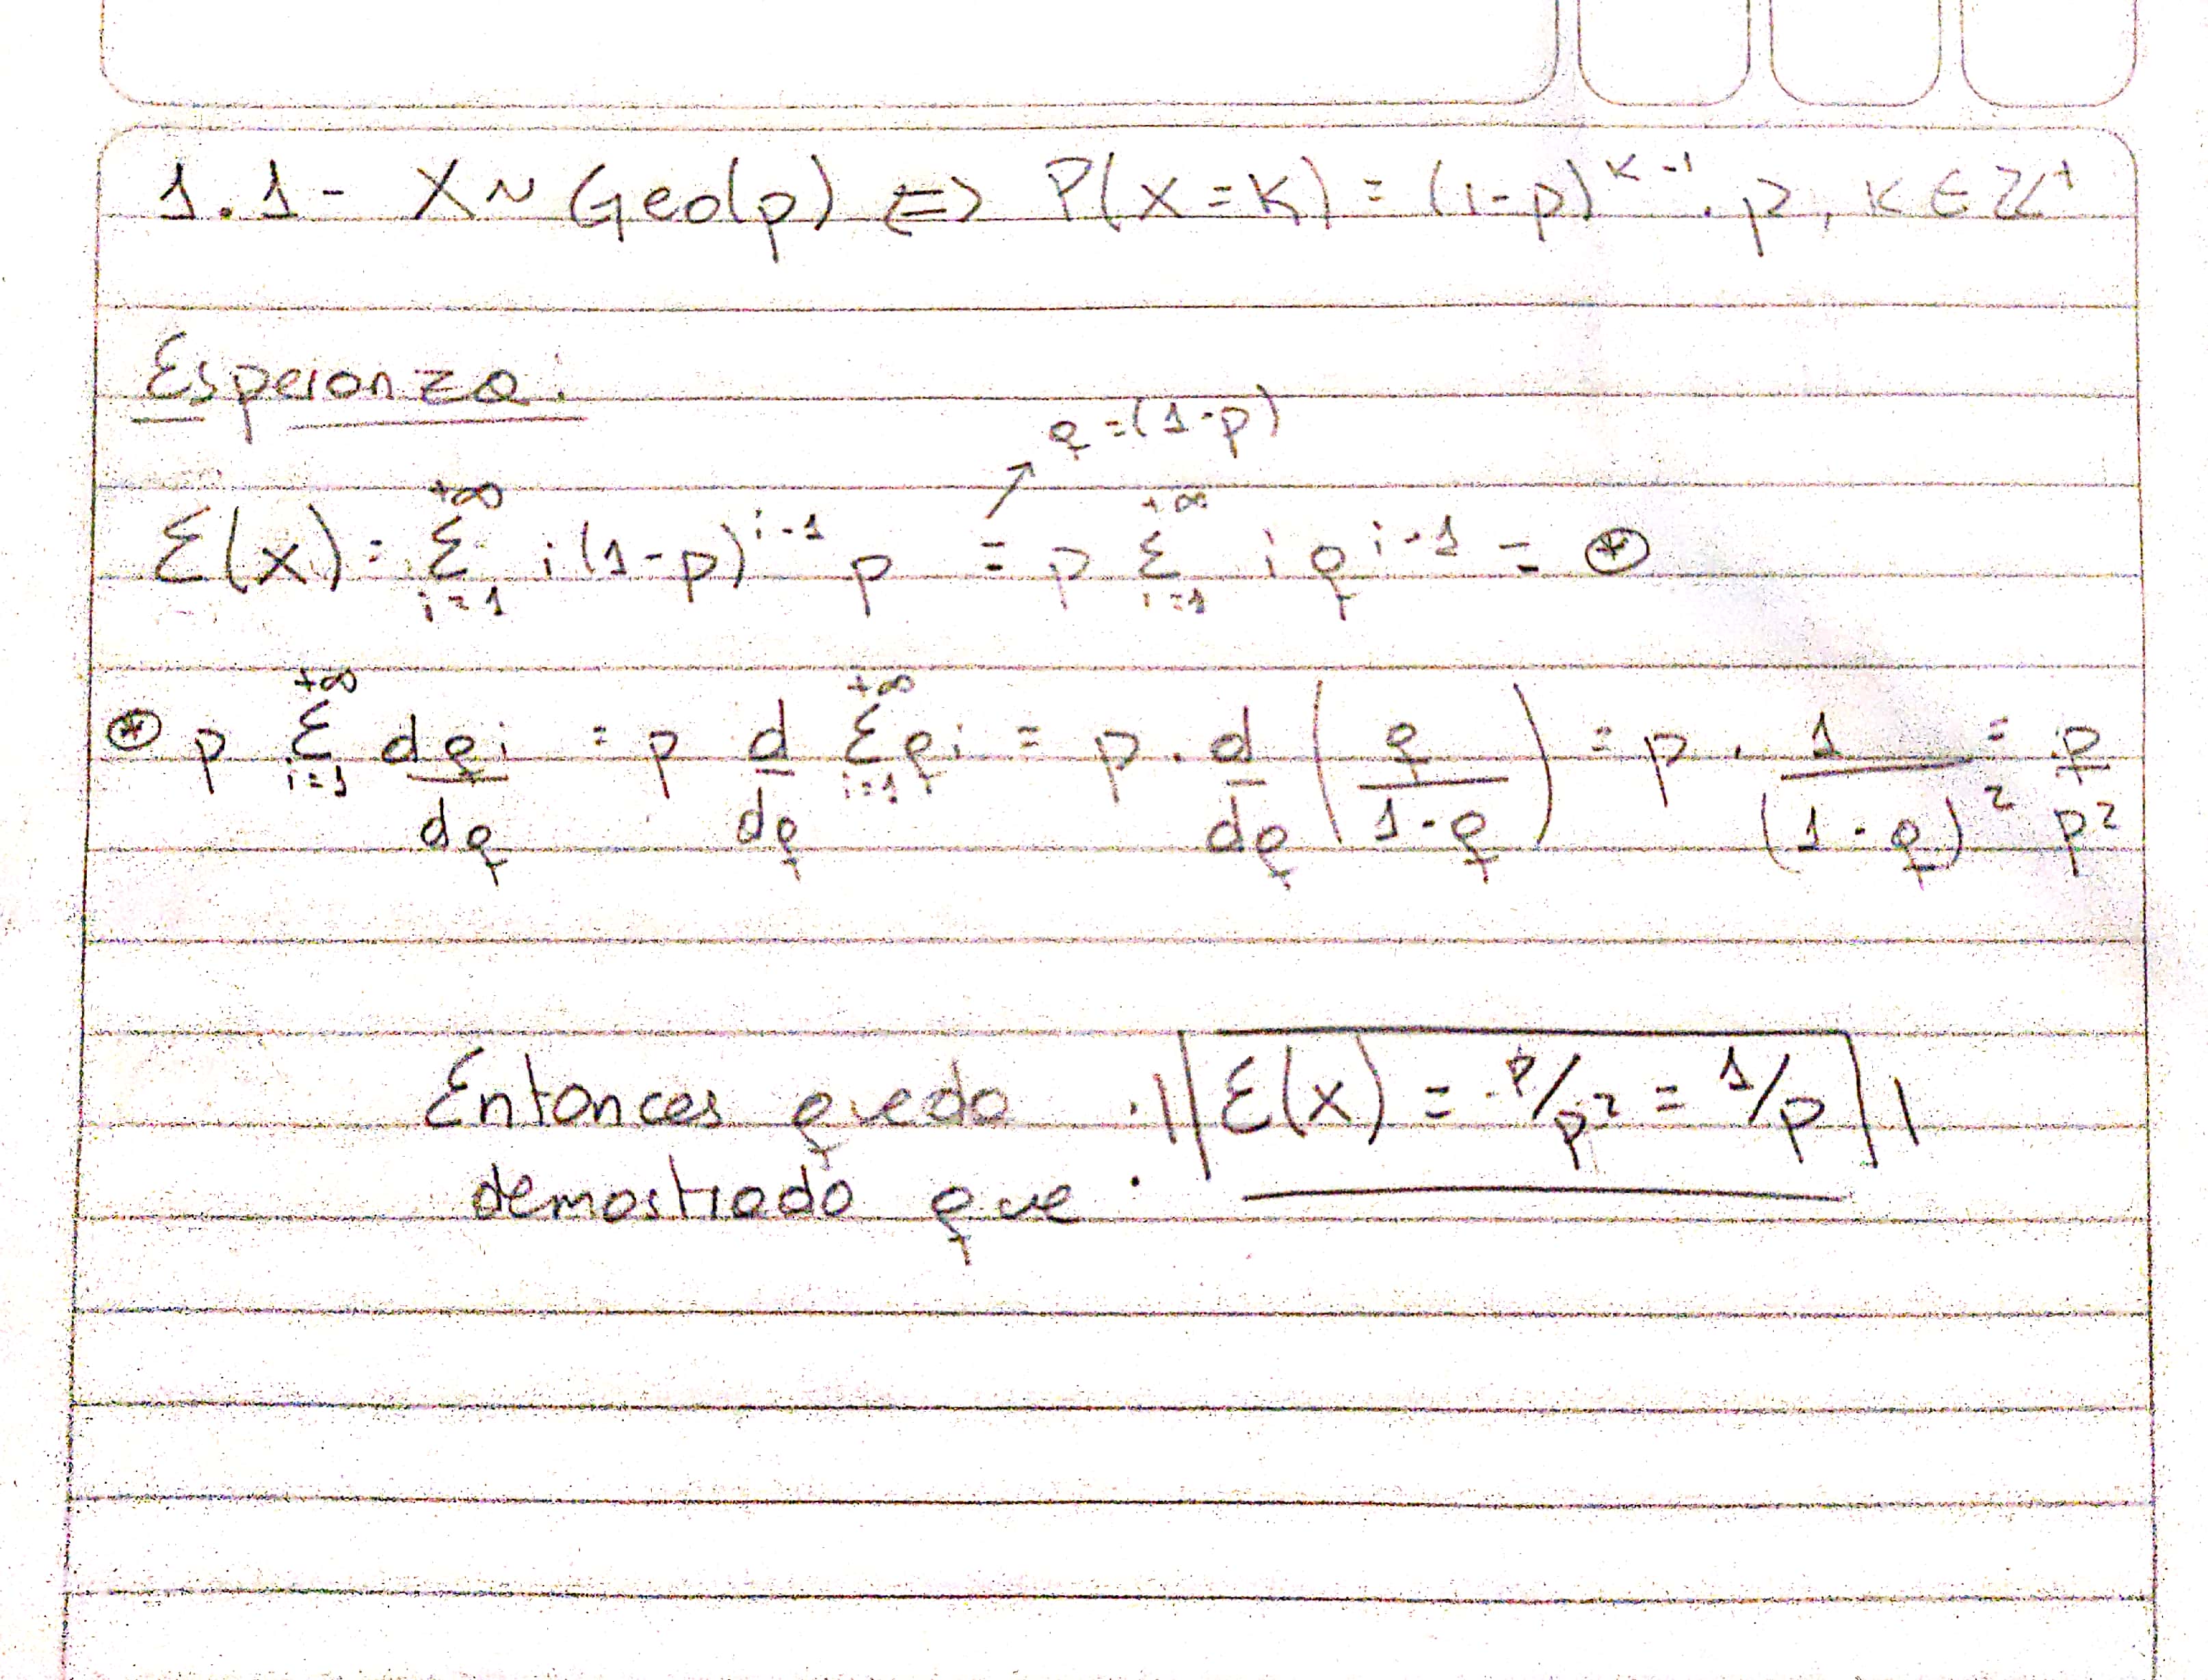 1.1- X ~ Geo(p) <=> P(X=K) = (1-p)^{K-1} . p, K ∈ ℤ⁺
Esperanza:
q = (1-p)
E(x) = Σ_{i=1}^{+∞} i(1-p)^{i-1} p = p Σ_{i=1}^{+∞} i q^{i-1} = ⊛
⊛ p Σ_{i=1}^{+∞} dqi/dq = p d/dq Σ_{i=1}^{+∞} qi = p . d/dq (q/(1-q)) = p . 1/(1-q)² = p/p²
Entonces queda : || E(x) = p/p² = 1/p ||
demostrado que